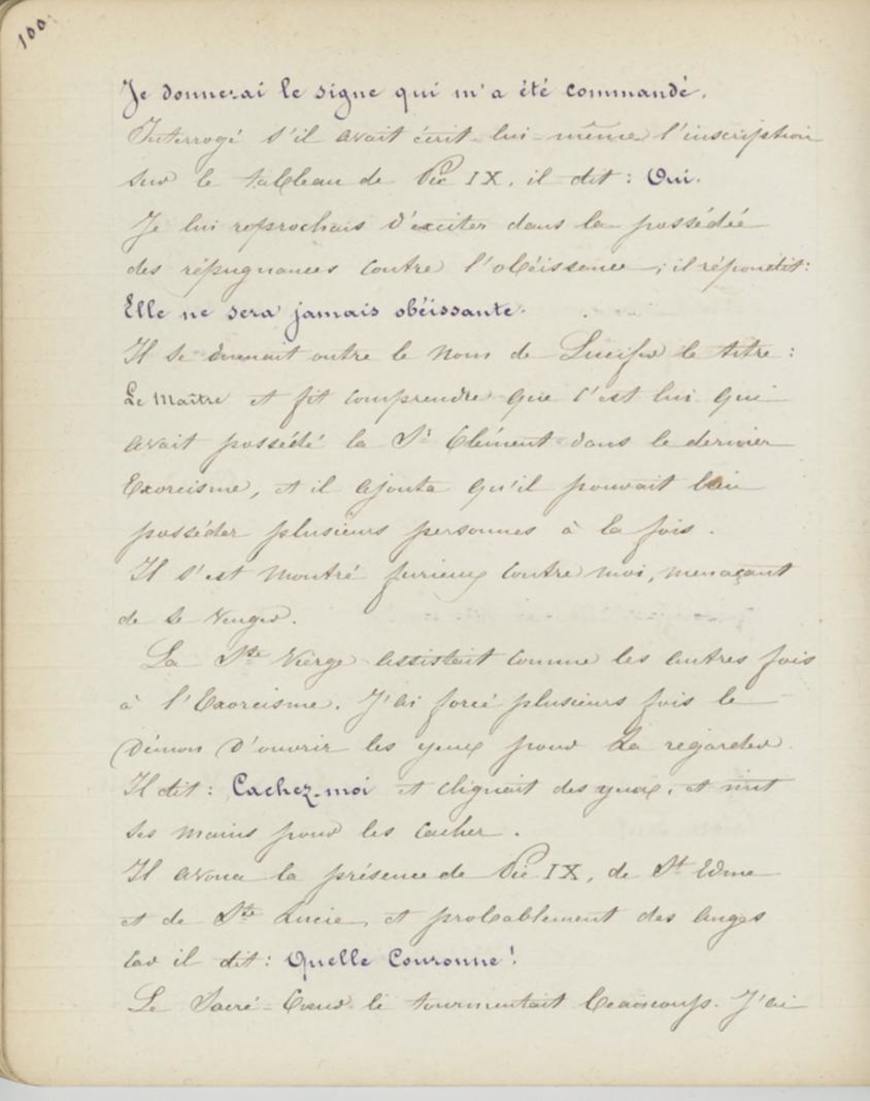 100
Je donnerai le signe qui m'a été commandé.
Interrogé s'il avait écrit lui-même l'inscription
sur le tableau de Pie IX, il dit : Oui.
Je lui reprochais d'exciter dans la possédée
des répugnances contre l'obéissance ; il répondit :
Elle ne sera jamais obéissante.
Il se donnait outre le nom de Lucifer le titre :
Le Maître et fit comprendre que c'est lui qui
avait possédé la Sr Clément dans le dernier
Exorcisme, et il ajouta qu'il pouvait bien
posséder plusieurs personnes à la fois.
Il s'est montré furieux contre moi, menaçant
de se venger.
La Ste Vierge assistait comme les autres fois
à l'Exorcisme. J'ai forcé plusieurs fois le
Démon d'ouvrir les yeux pour La regarder.
Il dit : Cachez-moi et clignait des yeux, et mit
ses mains pour les cacher.
Il avoua la présence de Pie IX, de St Edme
et de Ste Lucie, et probablement des anges
car il dit : Quelle Couronne !
Le Sacré-Cœur le tourmentait beaucoup. J'ai